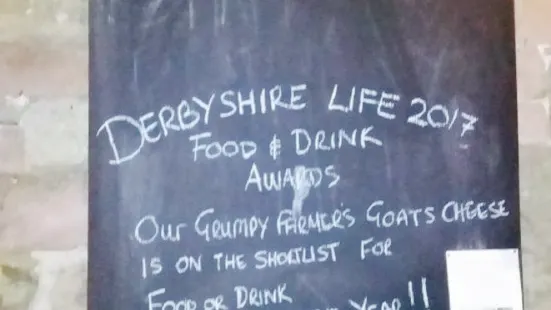 DERBYSHIRE LIFE 2017
FOOD & DRINK
AWARDS
OUr GRUMPY FARMER'S GOATS CHEESE
IS ON THE SHORTLIST FOR
FOOD OR DRINK
YEAR !!